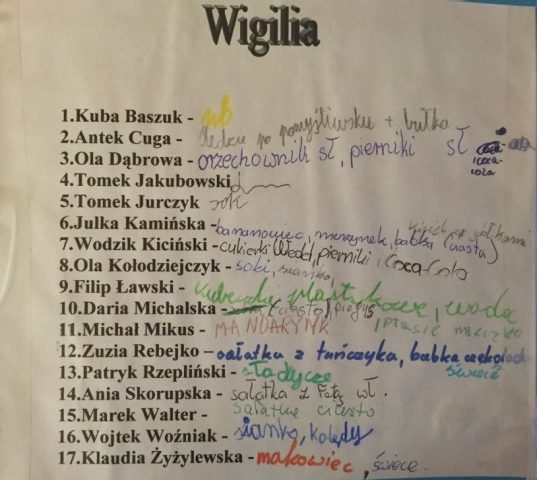 Wigilia
1.Kuba Baszuk -
2.Antek Cuga - śledzie po pomyśliwsku + bułka
3.Ola Dąbrowa - orzechownik sł, pierniki sł coca-cola
4.Tomek Jakubowski
5.Tomek Jurczyk - soki
6.Julka Kamińska - bananowiec, murzynek, babka (ciasta)
7.Wodzik Kiciński - cukierki Wedel, pierniki i Coca-Cola
8.Ola Kołodziejczyk - soki, sianko,
9.Filip Ławski - kubeczki plastykowe, woda
10.Daria Michalska - (ciasto) pieguś, ptasie mleczko
11.Michał Mikus - MANDARYNK
12.Zuzia Rebejko – sałatka z tuńczyka, babka czekolad
13.Patryk Rzepliński - słodycze świece
14.Ania Skorupska - sałatka z Fetą wł.
15.Marek Walter - sałatkę ciasto
16.Wojtek Woźniak - sianko, kolędy
17.Klaudia Żyżylewska - makowiec, świece.